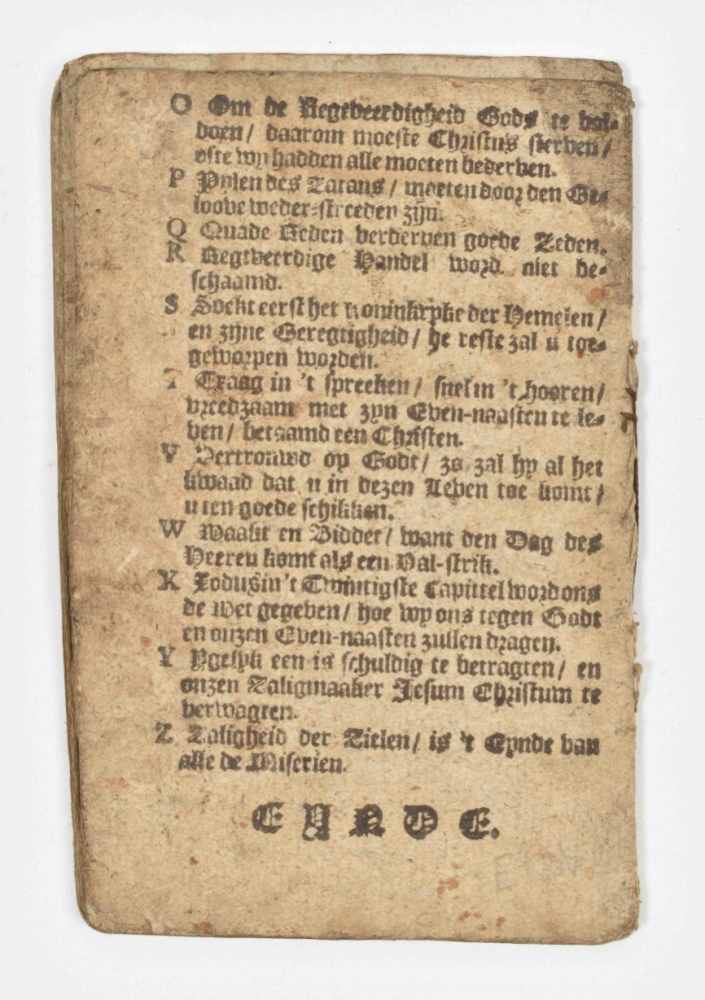 O Om de Regtveerdigheid Gods te vol-
doen / daarom moeste Christus sterven /
ofte wy hadden alle moeten bederven.
P Pylen des Satans / moeten door den Ge-
loove weder-streeden zijn.
Q Quade Reden verderven goede Zeden.
R Regtveerdige Handel word niet be-
schaamd.
S Soekt eerst het Koninkryke der Hemelen /
en zijne Geregtigheid / de reste zal u toe-
geworpen worden.
T Traag in 't spreeken / snel in 't hooren /
vreedzaam met zyn Even-naasten te le-
ven / betaamd een Christen.
V Vertrouwd op Godt / zo zal hy al het
kwaad dat u in dezen Leven toe komt /
u ten goede schikken.
W Waakt en Biddet / want den Dag des
Heeren komt als een Val-strik.
X Xodus in 't Twintigste Capittel word ons
de Wet gegeven / hoe wy ons tegen Godt
en onzen Even-naasten zullen dragen.
Y Ygelyk een is schuldig te betragten / en
onzen Zaligmaaker Jesum Christum te
verwagten.
Z Zaligheid der Zielen / is 't Eynde van
alle de Miserien.
EYNDE.